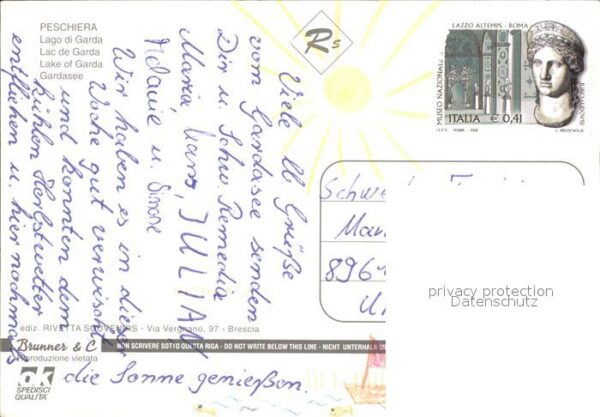 PESCHIERA
Lago di Garda
Lac de Garda
Lake of Garda
Gardasee
Rs
MUSEO NAZIONALE
PALAZZO ALTEMPS - ROMA
ITALIA € 0,41
I.P.Z.S. ROMA 2002
Viele lb Grüße
vom Gardasee senden
Dir u. Schw. Remedia
Maria Hans, JULIAN
Melanie u. Simone
Wir haben es in dieser
Woche gut verwischt
und konnten dem
kühlen Herbstwetter
entfliehen u. hier nochmals
die Sonne genießen.
896
privacy protection
Datenschutz
ediz. RIVETTA SOUVENIRS - Via Vergnano, 97 - Brescia
Brunner & C
NON SCRIVERE SOTTO QUESTA RIGA - DO NOT WRITE BELOW THIS LINE - NICHT UNTERHALB
Riproduzione vietata
ok
SPEDISCI
QUALITÀ